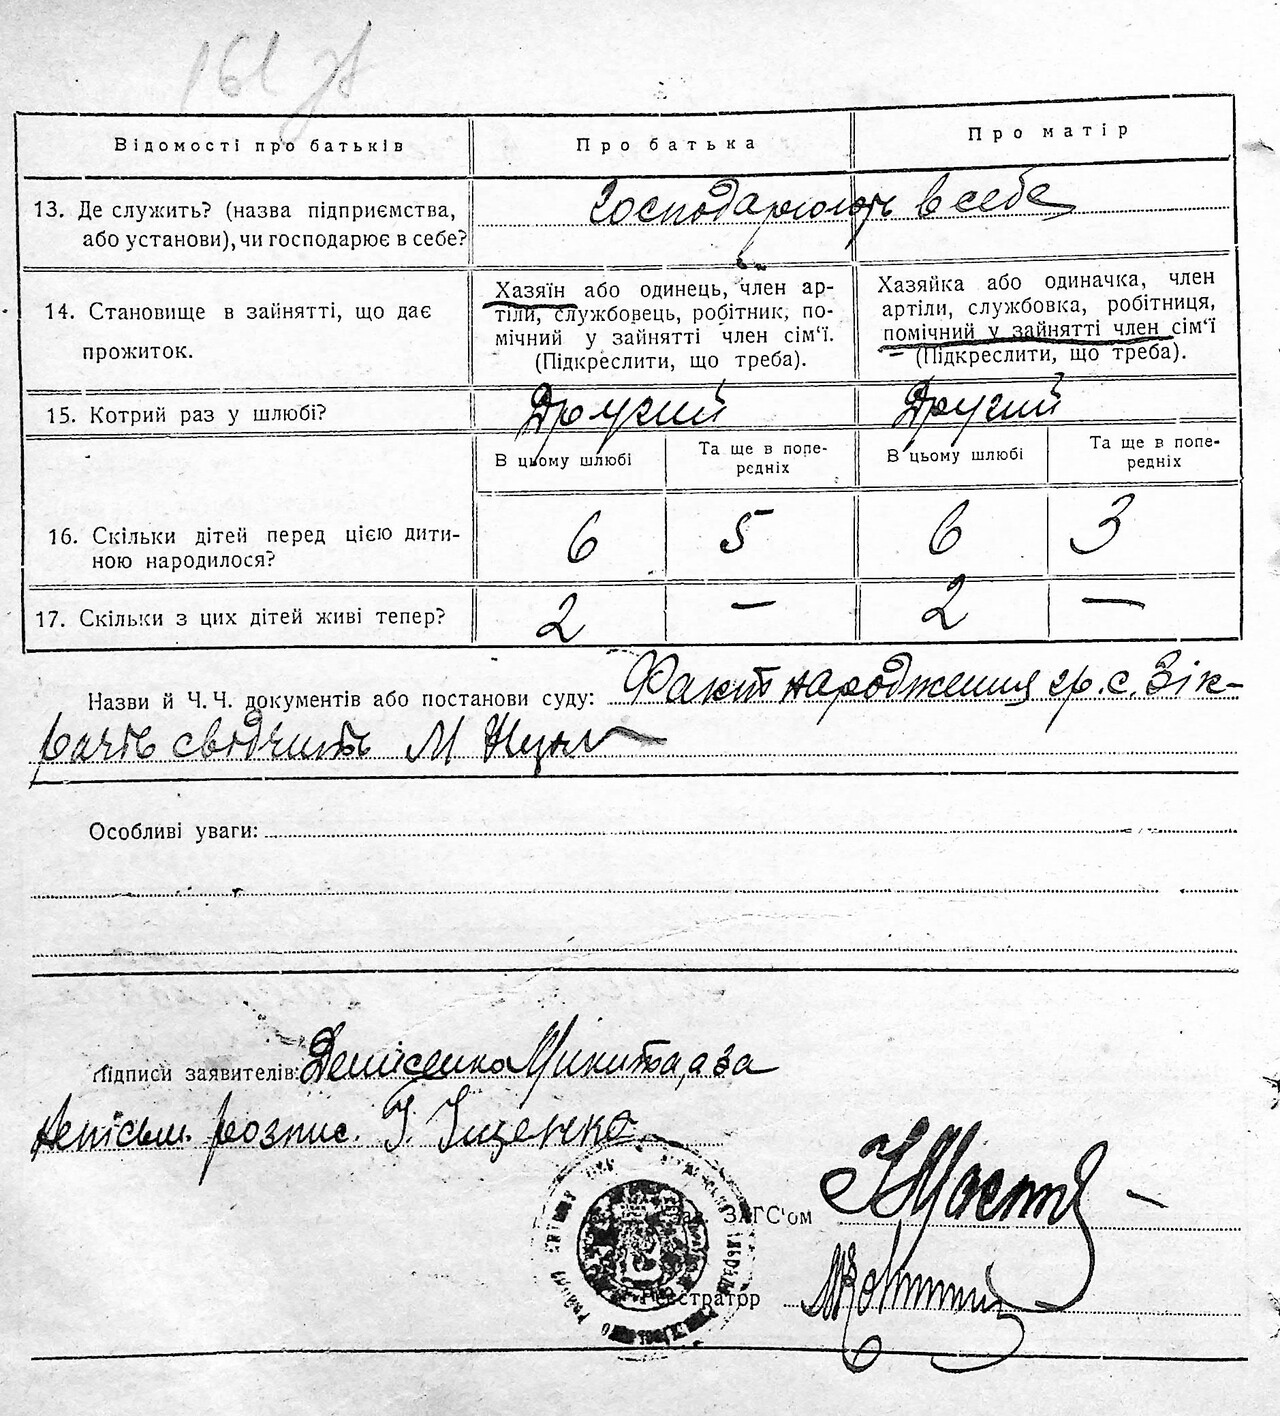 161 зв
Відомості про батьків
Про батька
Про матір
13. Де служить? (назва підприємства,
або установи), чи господарює в себе?
Господарюють в себе
14. Становище в зайнятті, що дає
прожиток.
Хазяїн або одинець, член ар-
тіли, службовець, робітник, по-
мічний у зайнятті член сім'ї.
(Підкреслити, що треба).
Хазяйка або одиначка, член
артіли, службовка, робітниця,
помічний у зайнятті член сім'ї
(Підкреслити, що треба).
15. Котрий раз у шлюбі?
Другий
Другий
В цьому шлюбі
Та ще в попе-
редніх
В цьому шлюбі
Та ще в попе-
редніх
16. Скільки дітей перед цією дити-
ною народилося?
6
5
6
3
17. Скільки з цих дітей живі тепер?
2
—
2
—
Назви й Ч. Ч. документів або постанови суду: Факт народження гр. с. Зік-
рачів свідчить М
Особливі уваги:
Підписи заявителів: Денисенко Микита, а за
непісьм. розпис. І. Іщенко
Зав. ЗАГС'ом
Реєстратор